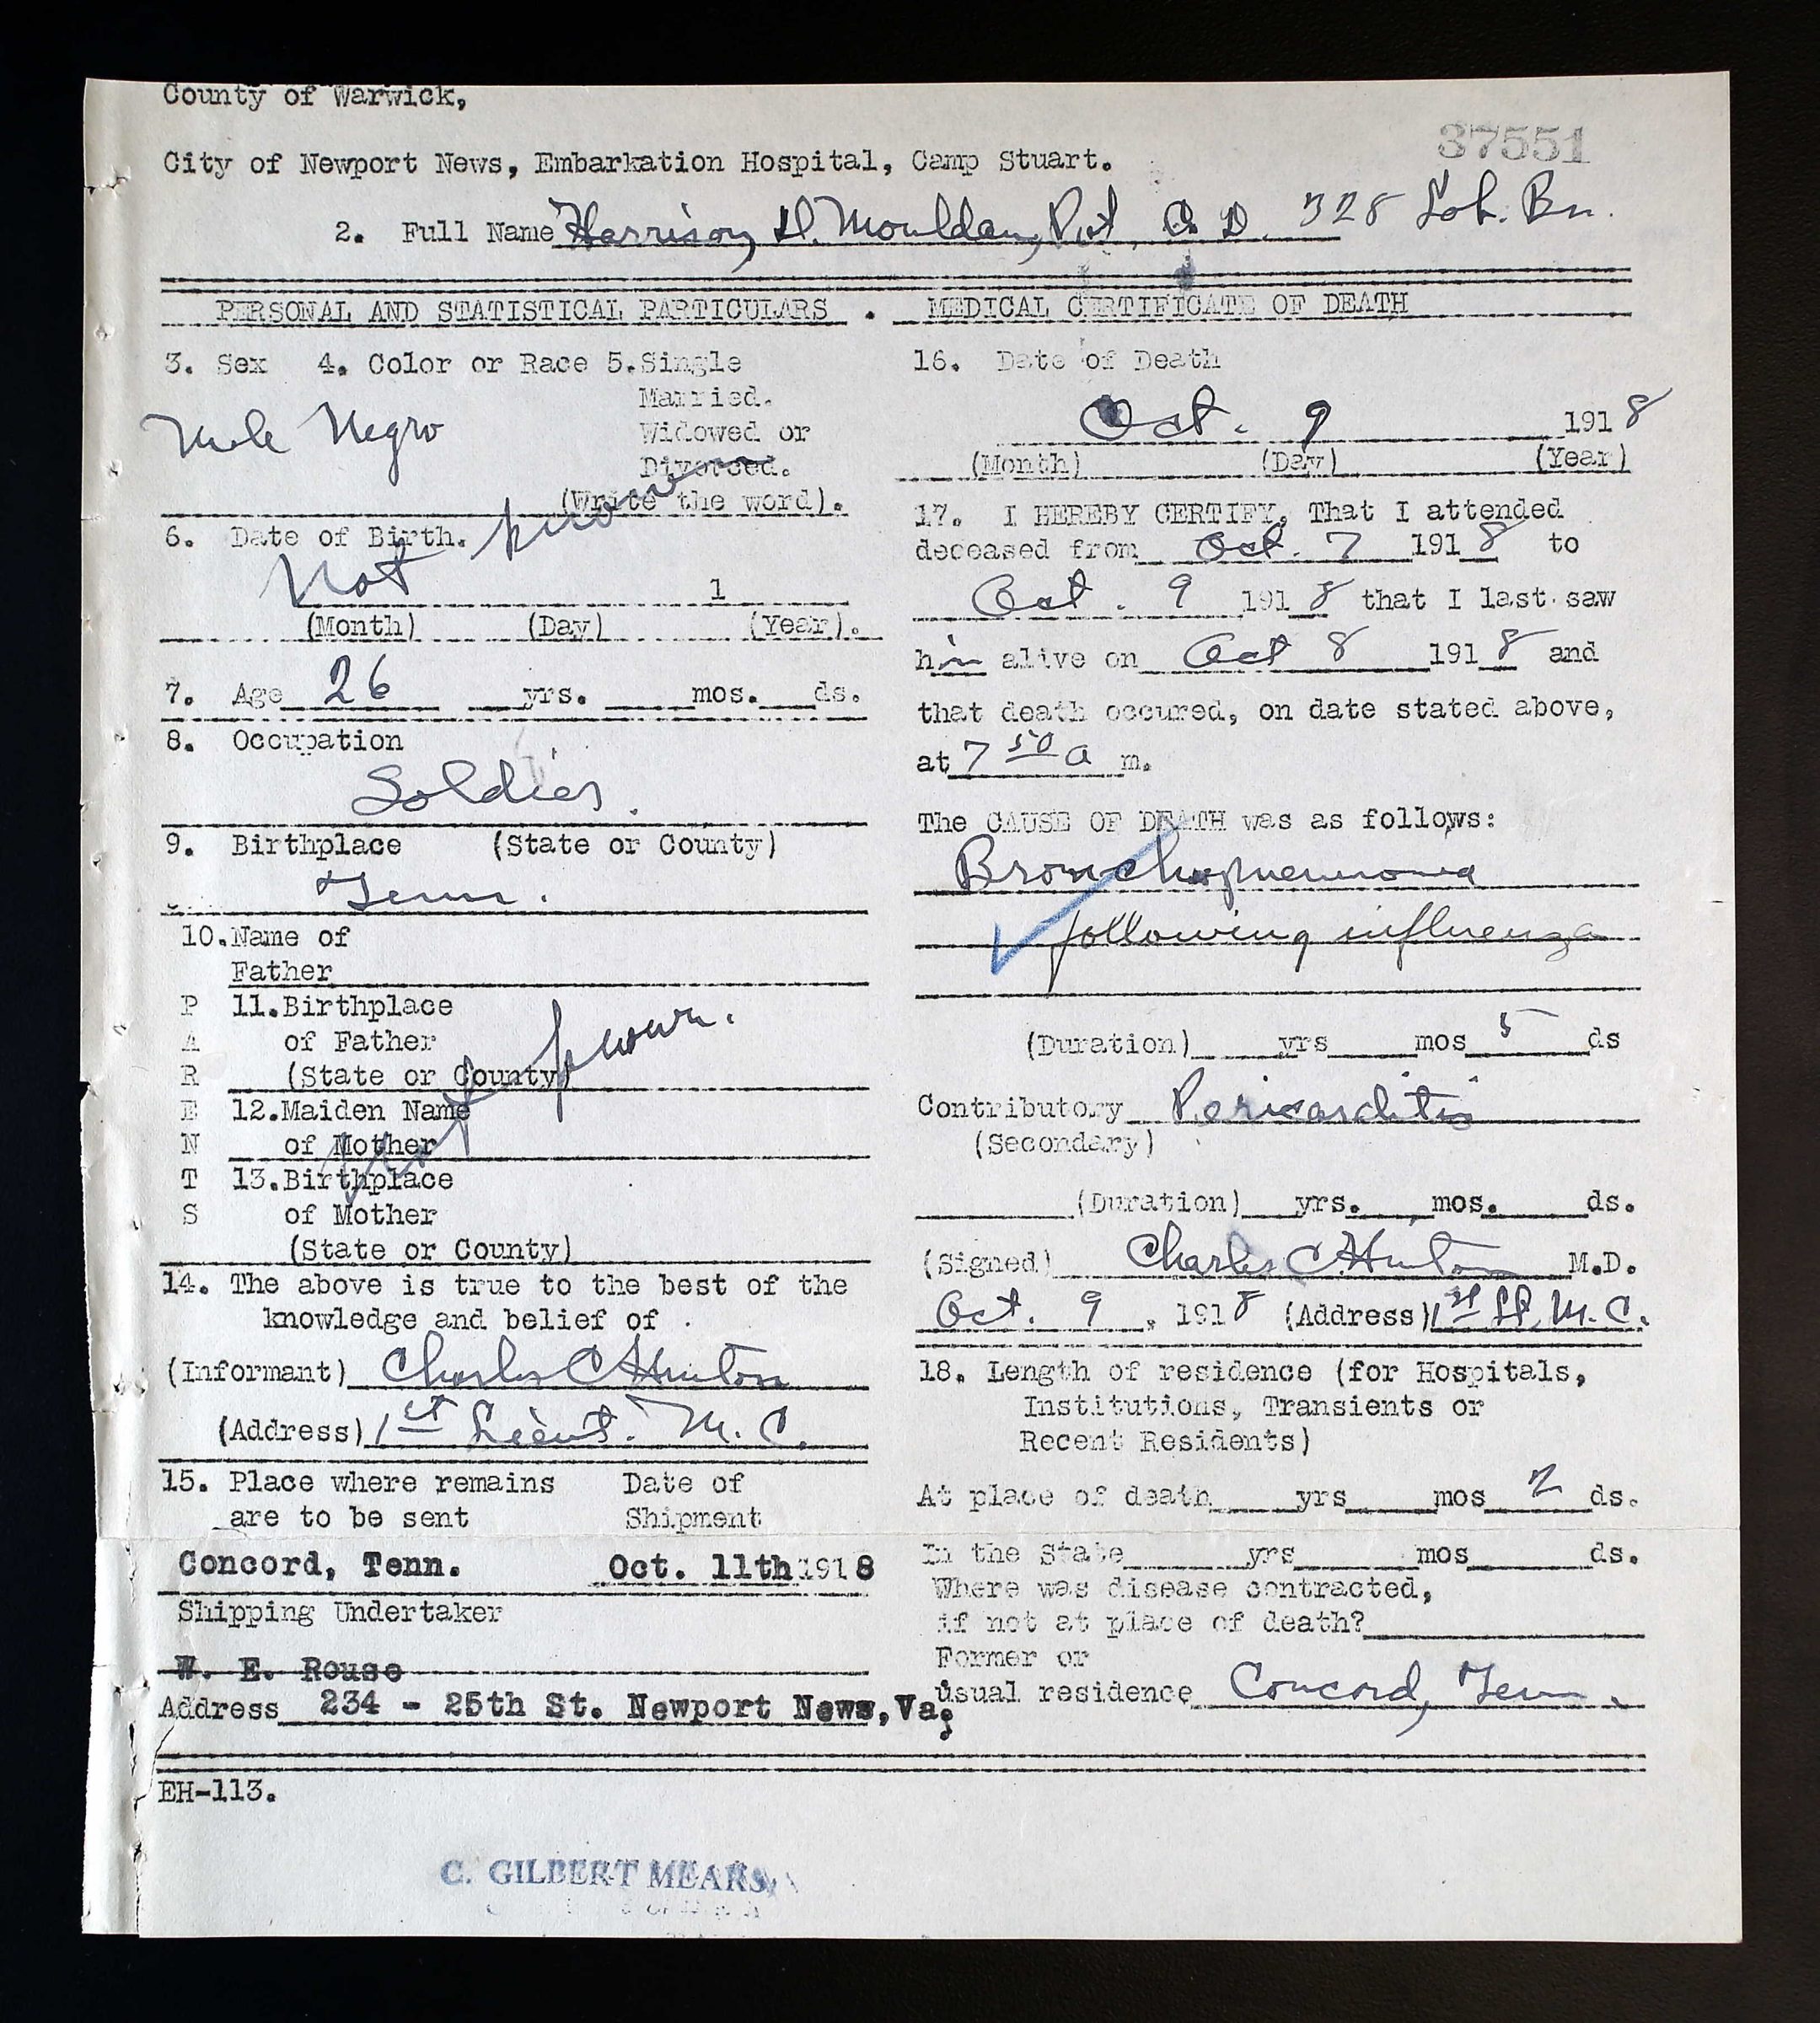 County of Warwick,
37551
City of Newport News, Embarkation Hospital, Camp Stuart.
2. Full Name Harrison H. Mouldan, Pvt, Co D. 328 Lab. Bn.
PERSONAL AND STATISTICAL PARTICULARS . MEDICAL CERTIFICATE OF DEATH
3. Sex 4. Color or Race 5. Single
Married.
Widowed or
Divorced.
(Write the word).
Male Negro
6. Date of Birth.
Not known
1
(Month) (Day) (Year).
7. Age 26 yrs. mos. ds.
8. Occupation
Soldier.
9. Birthplace (State or County)
Tenn.
10. Name of
Father
P 11. Birthplace
A of Father
R (State or County)
E 12. Maiden Name
N of Mother
T 13. Birthplace
S of Mother
(State or County)
Not known.
14. The above is true to the best of the
knowledge and belief of .
(Informant) Charles C Hinton
(Address) 1st Lieut. M. C.
15. Place where remains Date of
are to be sent Shipment
Concord, Tenn. Oct. 11th 1918
Shipping Undertaker
W. E. Rouse
Address 234 - 25th St. Newport News, Va.
16. Date of Death
Oct. 9 1918
(Month) (Day) (Year)
17. I HEREBY CERTIFY, That I attended
deceased from Oct. 7 1918 to
Oct. 9 1918 that I last saw
him alive on Oct 8 1918 and
that death occured, on date stated above,
at 7 50 a m.
The CAUSE OF DEATH was as follows:
Bronchopneumonia
following influenza
(Duration) yrs mos 5 ds
Contributory Pericarditis
(Secondary)
(Duration) yrs. mos. ds.
(Signed) Charles C. Hinton M.D.
Oct. 9, 1918 (Address) 1st Lt, M. C.
18. Length of residence (for Hospitals,
Institutions, Transients or
Recent Residents)
At place of death yrs mos 2 ds.
In the State yrs mos ds.
Where was disease contracted,
if not at place of death?
Former or
usual residence Concord, Tenn.
EH-113.
C. GILBERT MEARS,